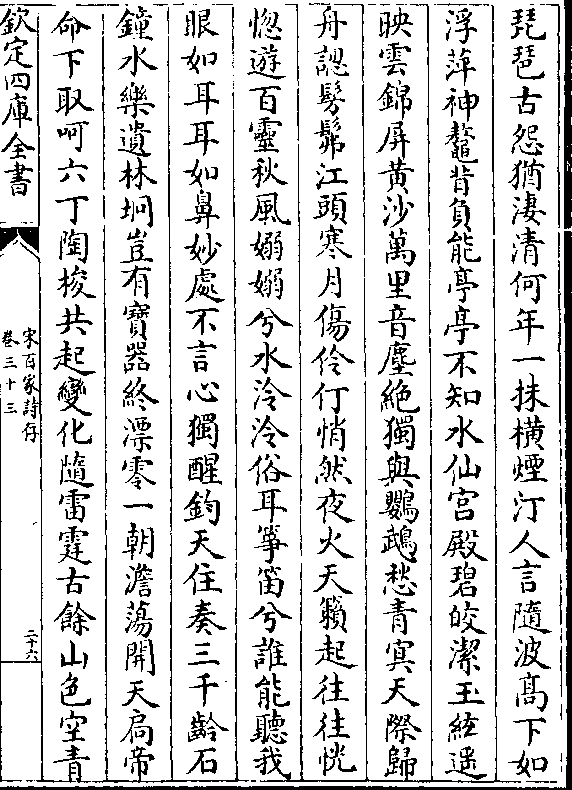 琵琶古怨猶淒清何年一抹橫煙汀人言隨波高下如
浮萍神鼇背負能亭亭不知水仙宫殿碧皎潔玉絃遥
映雲錦屏黄沙萬里音塵絶獨與鸚鵡愁青冥天際歸
舟認髣髴江頭寒月傷伶仃悄然夜火天籟起往往恍
惚遊百靈秋風嫋嫋兮水泠泠俗耳箏笛兮誰能聽我
眼如耳耳如鼻妙處不言心獨醒鈞天住奏三千齡石
鐘水樂遺林坰豈有寳器終漂零一朝澹蕩開天扃帝
命下取呵六丁陶梭共起變化隨雷霆古餘山色空青
欽定四庫全書
宋百家詩存
卷三十三
二十六